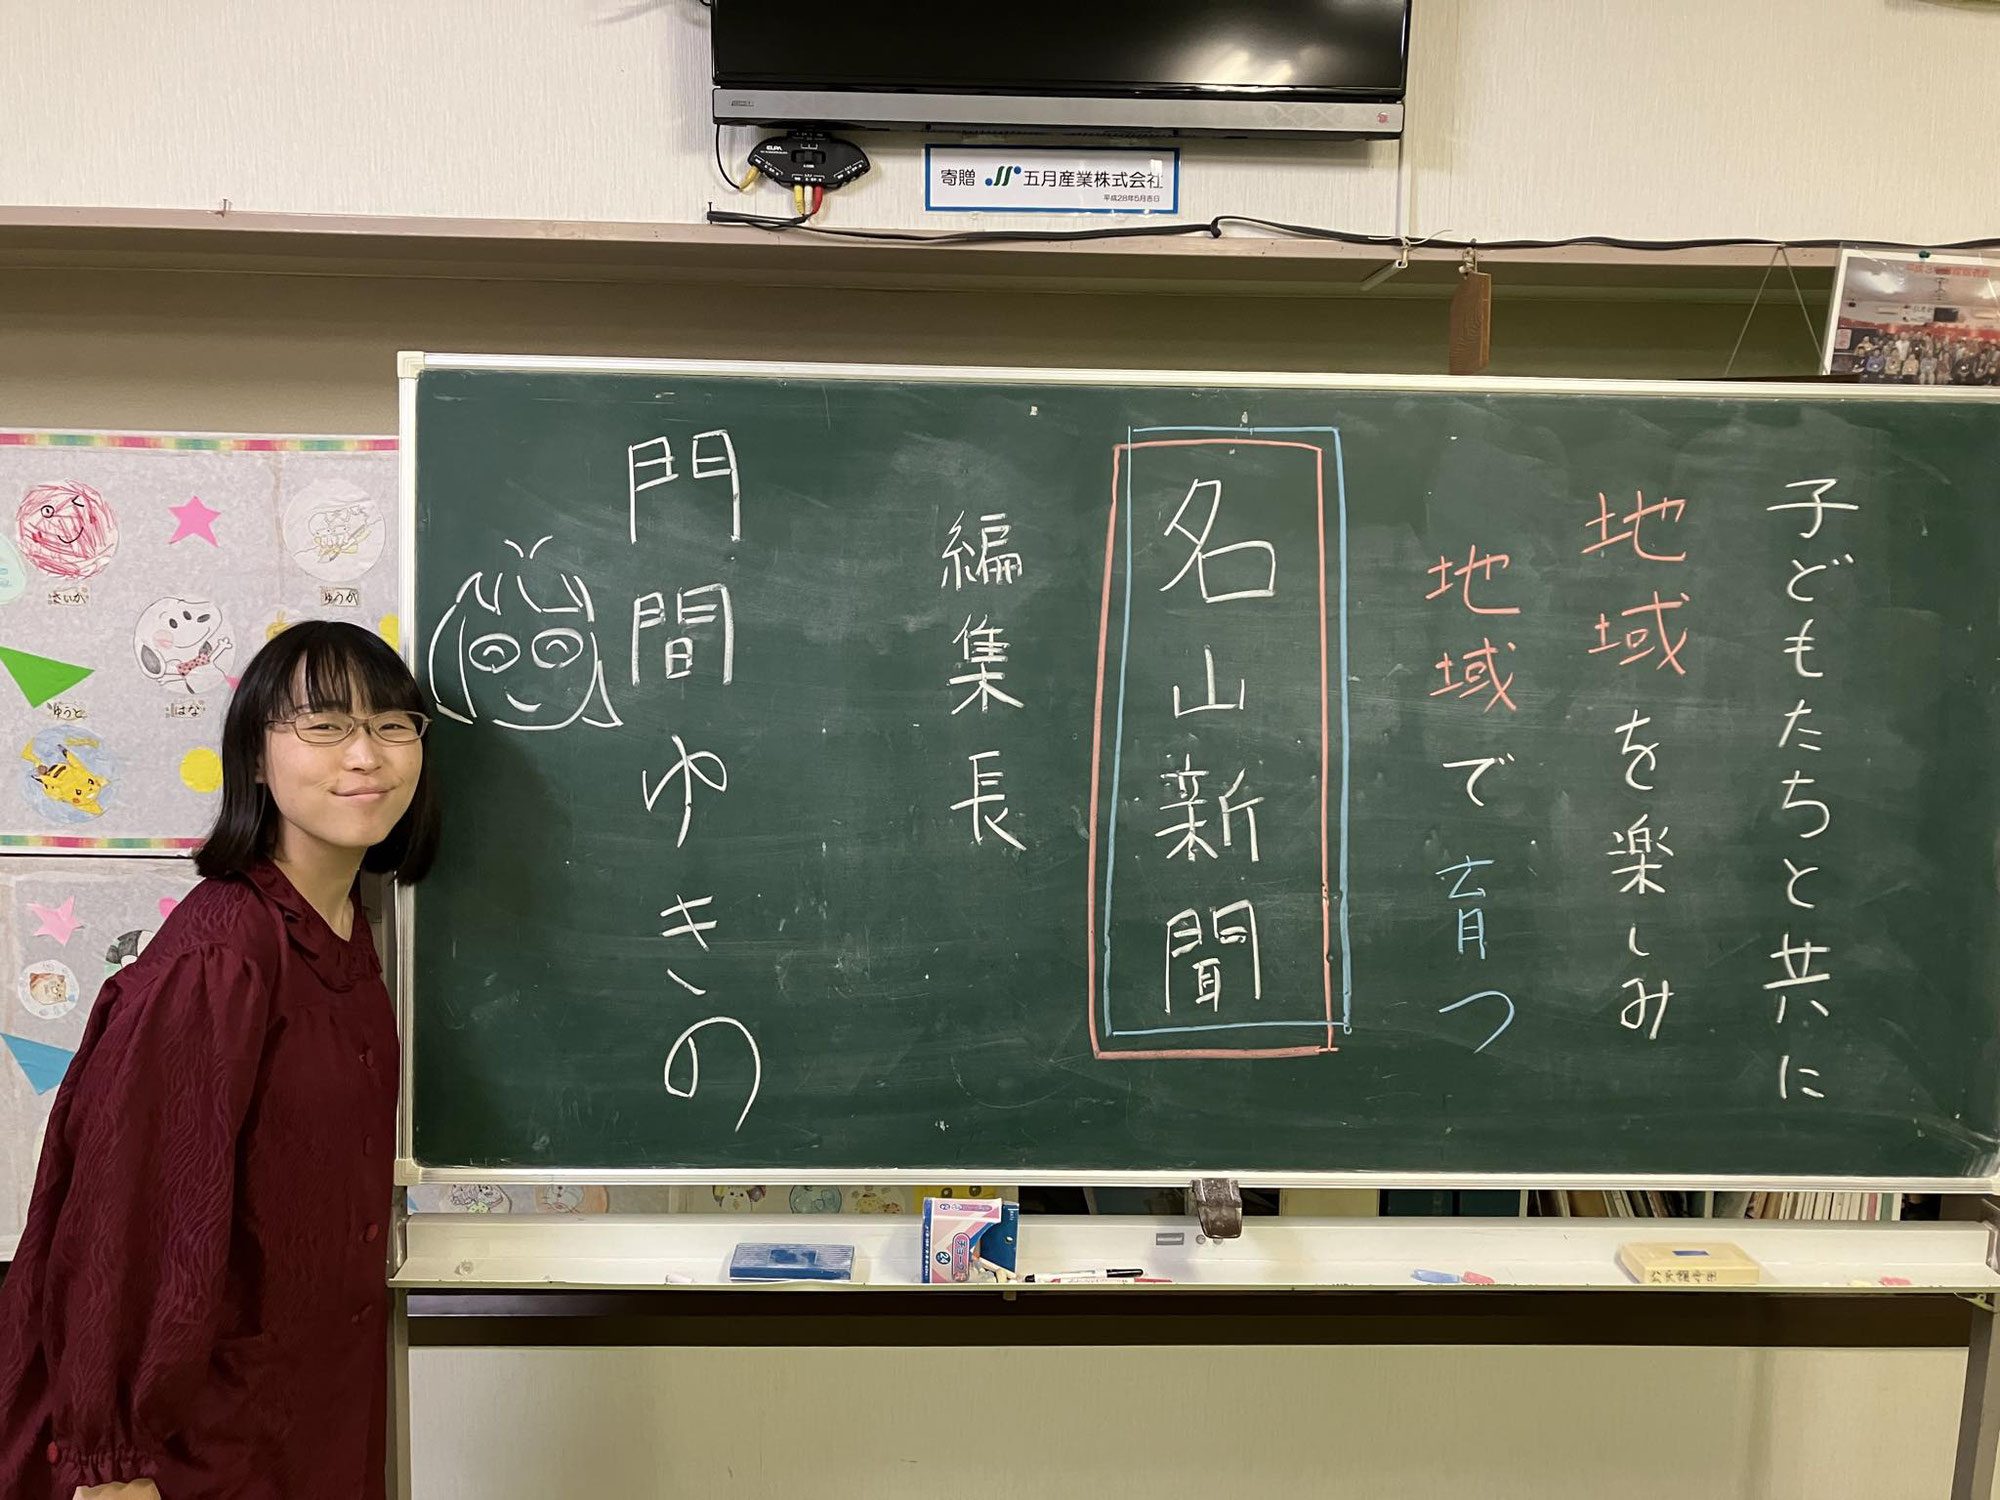 寄贈 五月産業株式会社
平成28年5月吉日
子どもたちと共に
地域を楽しみ
地域で育つ
名山新聞
編集長
門間ゆきの
さいか
ゆうか
ゆうと
はな
ELPA
チョーク
24